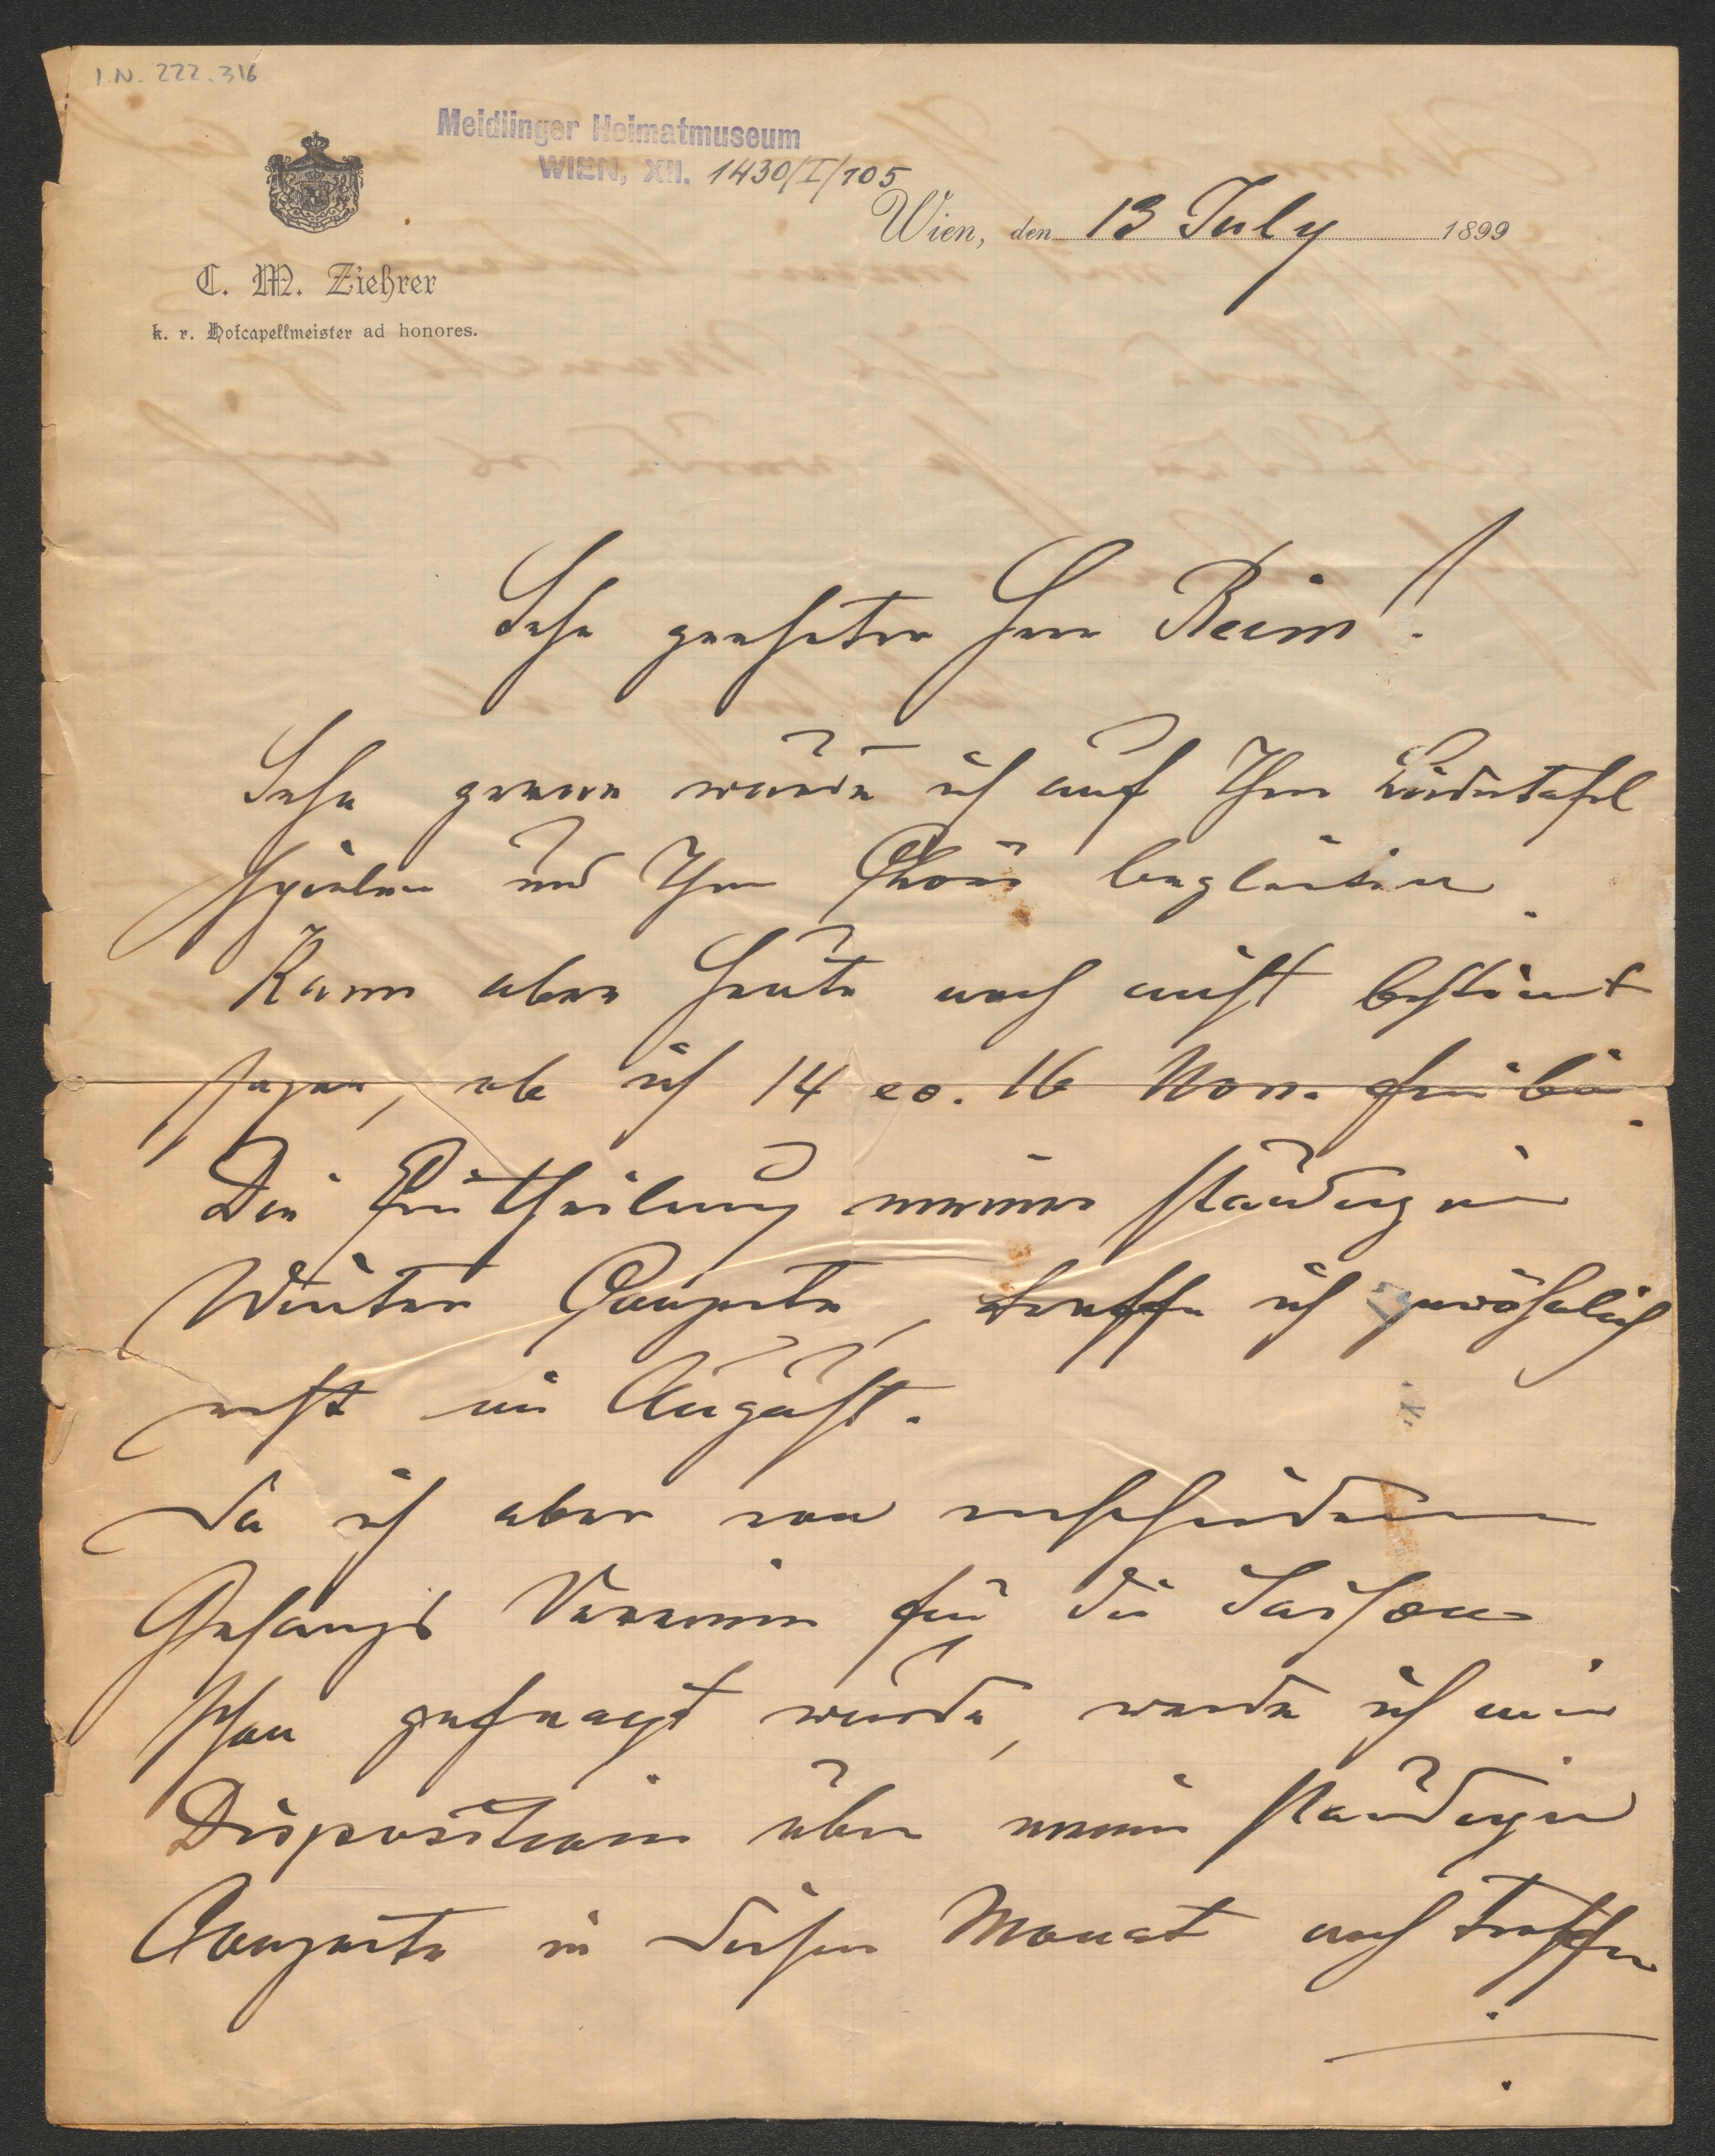 I.N. 222.316
Meidlinger Heimatmuseum
WIEN, XII. 1430/I/105
Wien, den 13 July 1899
C. M. Ziehrer
k. r. Hofcapellmeister ad honores.
Sehr geehrter Herr Reim!
Sehr gerne würde ich auf Ihrer Liedertafel
spielen und Ihre Chöre begleiten.
Kann aber heute noch nicht bestimt
sagen, ob ich 14 eo. 16 Nov. frei bin.
Die Eintheilung meiner ständigen
Winter Conzerte, treffe ich gewöhnlich
erst im August.
Da ich aber von verschiedenen
Gesangs Vereinen für die Saison
schon gefragt wurde, werde ich meine
Disposition über meine ständigen
Conzerte in diesem Monat noch treffen